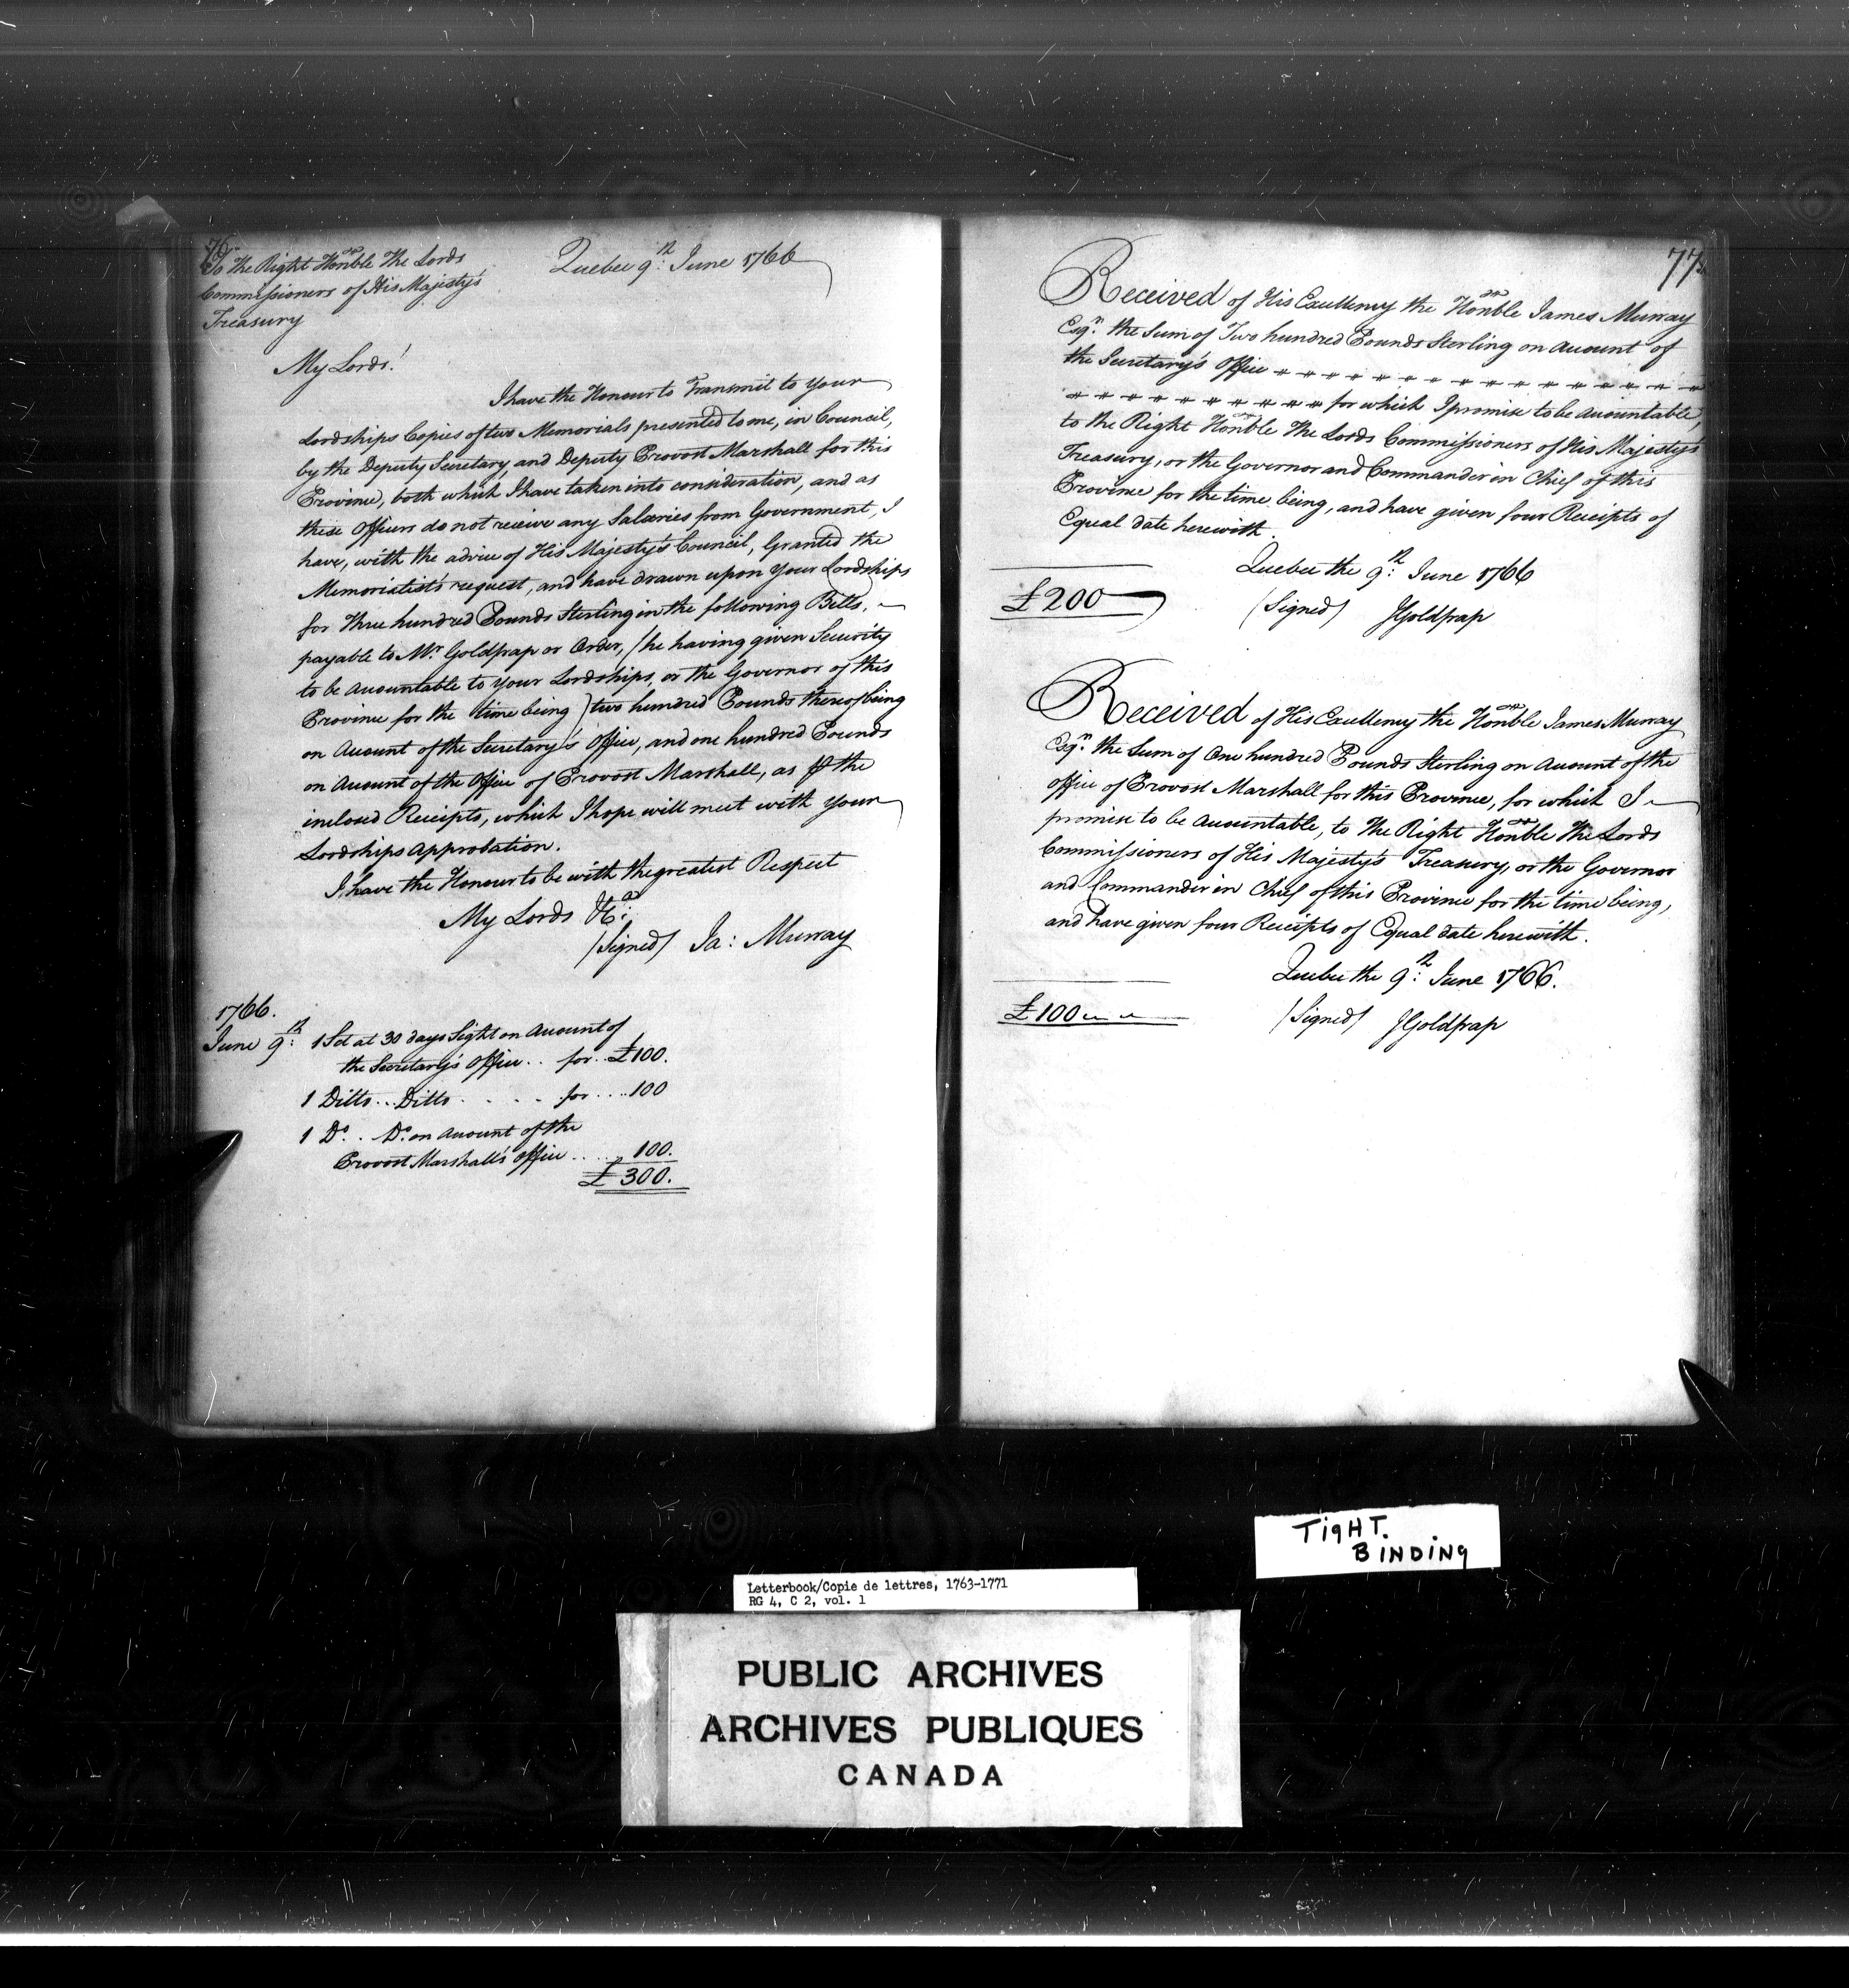 76
To the Right Honble The Lords
Commissioners of His Majesty's
Treasury
Quebec 9th: June 1766
My Lords!
I have the Honour to Transmit to Your
Lordships Copies of two Memorials presented to me, in Council,
by the Deputy Secretary, and Deputy Provost Marshall for this
Province, both which I have taken into consideration, and as
these Officers do not receive any Salaries from Government, I
have, with the advice of His Majesty's Council, Granted the
Memorialist's request, and have drawn upon Your Lordships
for Three hundred Pounds Sterling in the following Bills,
payable to Mr Goldfrap or Order, (he having given Security
to be Accountable to Your Lordships, or the Governor of this
Province for the time being) two hundred Pounds thereof being
on Account of the Secretary's Office, and one hundred Pounds
on Account of the Office of Provost Marshall, as ⅌ the
inclosed Receipts, which I hope will meet with Your
Lordships Approbation.
I have the Honour to be with the greatest Respect
My Lords &ca:
(Signed) Ja: Murray
1766.
June 9th: 1 Set at 30 days Sight on Account of
the Secretary's Office .. for .. £100.
1 Ditto .. Ditto . . . . for .... 100
1 Do. . Do. on Account of the
Provost Marshall's Office ..... 100.
£ 300.
77
Received of His Excellency the Honble James Murray
Esqr. the Sum of Two hundred Pounds Sterling on Account of
the Secretary's Office
for which I promise to be Accountable,
to the Right Honble The Lords Commissioners of His Majesty's
Treasury, or the Governor and Commander in Chief of this
Province for the time being, and have given four Receipts of
Equal date herewith.
Quebec the 9th: June 1766
£200
(Signed) JGoldfrap
Received of His Excellency the Honble James Murray
Esqr. the Sum of One hundred Pounds Sterling on Account of the
Office of Provost Marshall for this Province, for which I
promise to be Accountable, to The Right Honble The Lords
Commissioners of His Majesty's Treasury, or the Governor
and Commander in Chief of this Province for the time being,
and have given four Receipts of Equal date herewith.
Quebec the 9th: June 1766.
£100
(Signed) JGoldfrap
TigHT.
BINDINg
Letterbook/Copie de lettres, 1763-1771
RG 4, C 2, vol. 1
PUBLIC ARCHIVES
ARCHIVES PUBLIQUES
CANADA